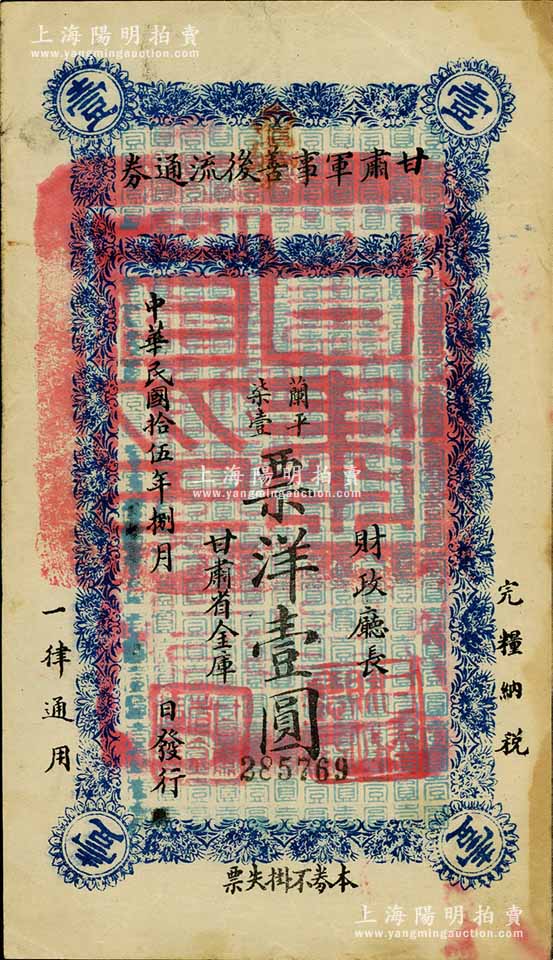 上海陽明拍賣
www.yangmingauction.com
壹
壹
甘肅軍事善後流通券
完糧納税
財政廳長
蘭平
柒壹
票洋壹圓
甘肅省金庫
中華民國拾伍年捌月 日發行
一律通用
上海陽明拍賣
www.yangmingauction.com
285769
壹
壹
本券不掛失票
上海陽明拍賣
www.yangmingauction.com